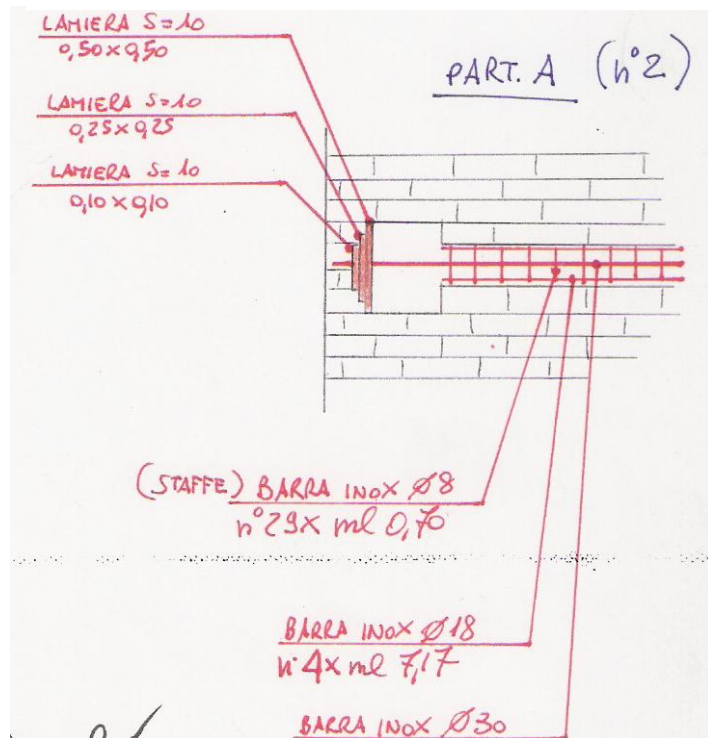 LAMIERA S=10
0,50 x 0,50
PART. A (n°2)
LAMIERA S=10
0,25 x 0,25
LAMIERA S=10
0,10 x 0,10
(STAFFE) BARRA INOX Ø8
n°29x ml 0,70
BARRA INOX Ø18
n°4x ml 7,17
BARRA INOX Ø30